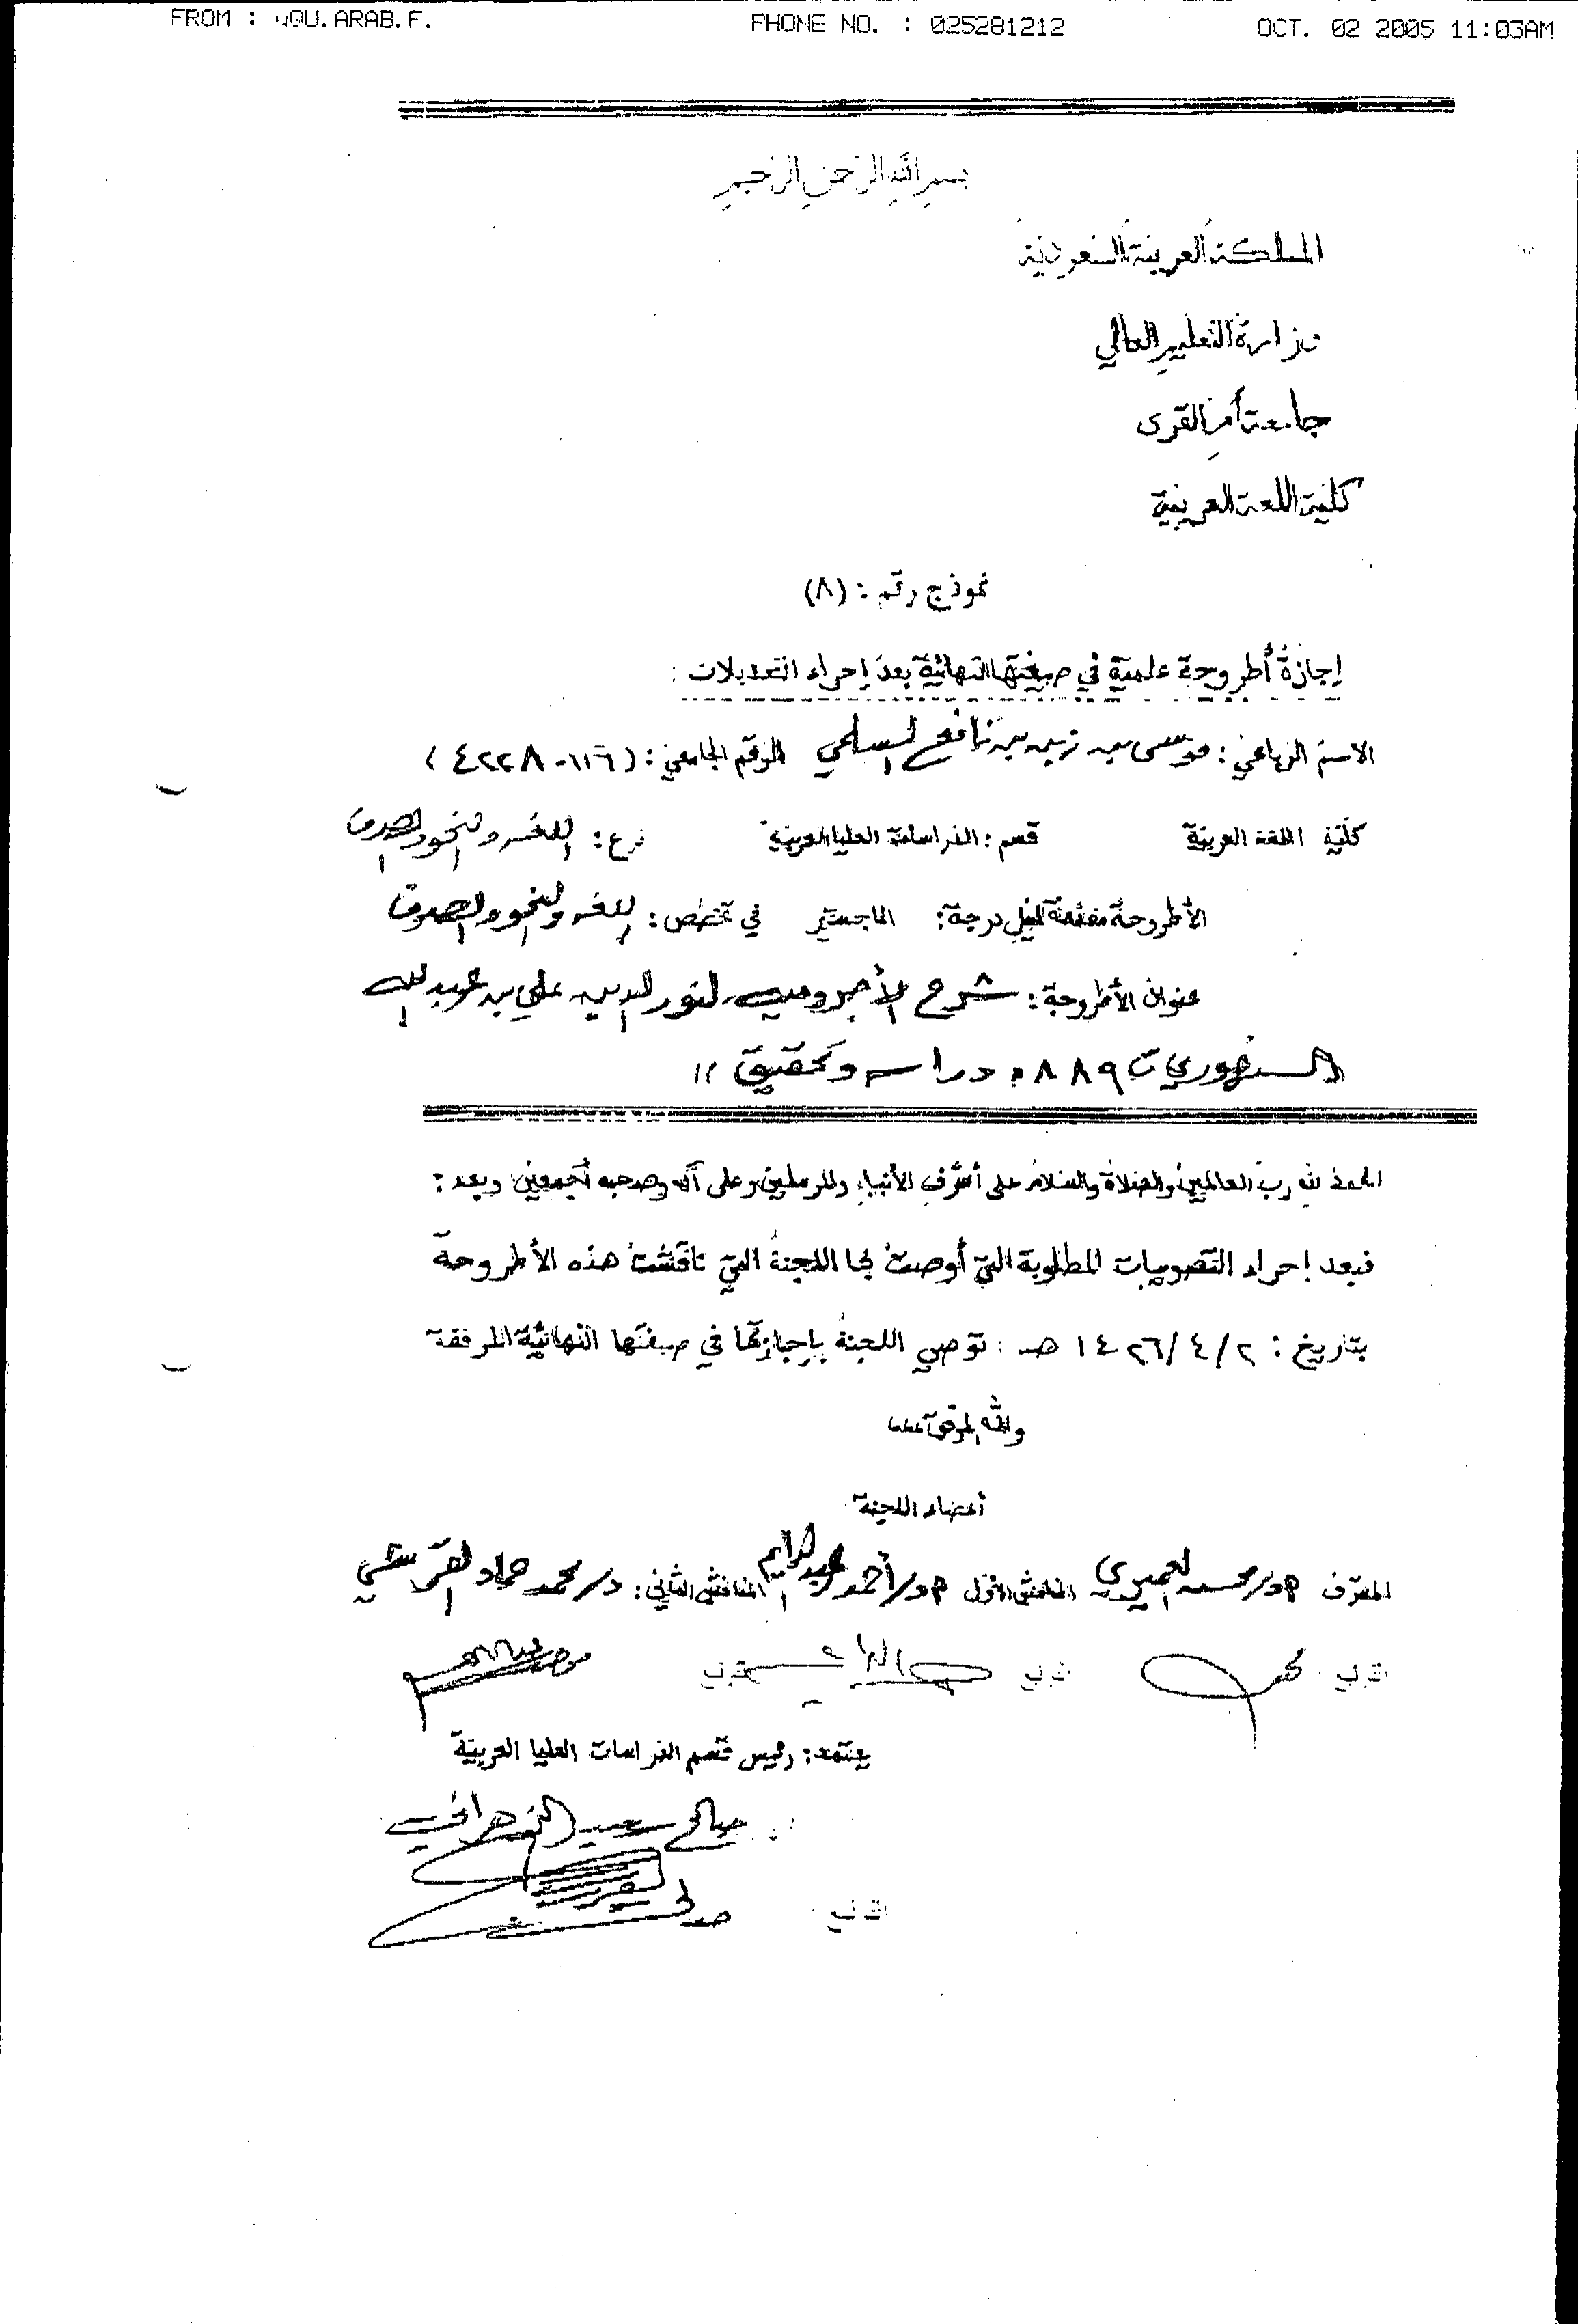 FROM : UQU.ARAB.F. PHONE NO. : 025281212 OCT. 02 2005 11:03AM
بسم الله الرحمن الرحيم
المملكة العربية السعودية
وزارة التعليم العالي
جامعة أم القرى
كلية اللغة العربية
نموذج رقم : (٨)
إجازة أطروحة علمية في صيغتها النهائية بعد إجراء التعديلات :
الاسم الرباعي : موسى بن زين بن نافع السلمي الرقم الجامعي : (٤٢٢٨٠١١٦)
كلية اللغة العربية قسم : الدراسات العليا العربية فرع : اللغة والنحو والصرف
الأطروحة مقدمة لنيل درجة : الماجستير في تخصص : اللغة والنحو والصرف
عنوان الأطروحة : شرح الأجرومية لنور الدين علي بن عبد الله
السنهوري ت ٨٨٩ هـ دراسة وتحقيق "
الحمد لله رب العالمين والصلاة والسلام على أشرف الأنبياء والمرسلين وعلى آله وصحبه أجمعين وبعد :
فبعد إجراء التصويبات المطلوبة التي أوصت بها اللجنة التي ناقشت هذه الأطروحة
بتاريخ : ٢ / ٤ / ١٤٢٦ هـ . توصي اللجنة بإجازتها في صيغتها النهائية المرفقة
والله الموفق ،،،،
أعضاء اللجنة
المشرف أ.د/ محسن العميري المناقش الأول أ.د/ أحمد عبد الدايم المناقش الثاني : د/ محمد حماد القرشي
التوقيع التوقيع التوقيع
يعتمد : رئيس قسم الدراسات العليا العربية
صالح سعيد الزهراني
التوقيع